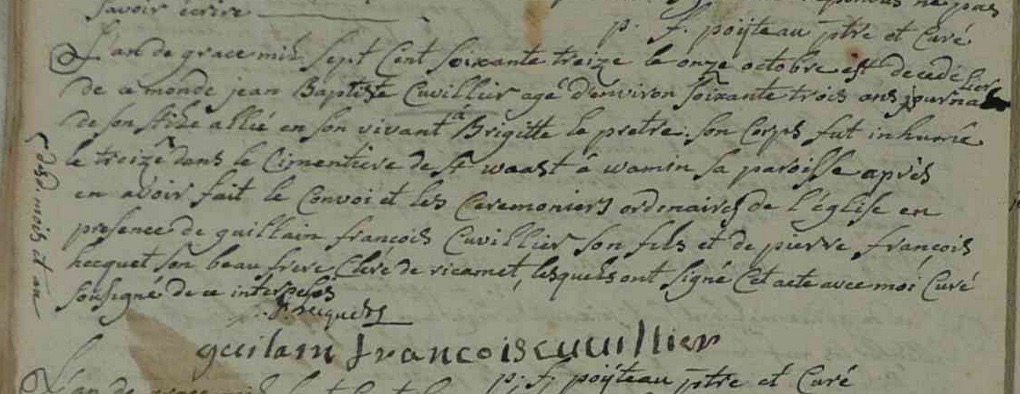 savoir écrire
p. f. poijteau ptre et Curé
L'an de grace mil sept Cent soixante treize le onze octobre est decedé
de ce monde jean Baptiste Cuvillier agé d'environ soixante trois ans journalier
de son stile allié en son vivant à Brigitte le pretre. son Corps fut inhumé
le treize dans le Cimentiere de st waast à wamin sa paroisse après
desd. mois et an
en avoir fait le Convoi et les Ceremonies ordinaires de l'église en
presence de guillain françois Cuvillier son fils et de pierre françois
hecquet son beau frere, Clerc de ricamet, lesquels ont signé Cet acte avec moi Curé
sousigné de ce interpelés
hecquet
guilain francois cuuillier
p. f. poijteau ptre et Curé
L'an de grace mil sept Cent